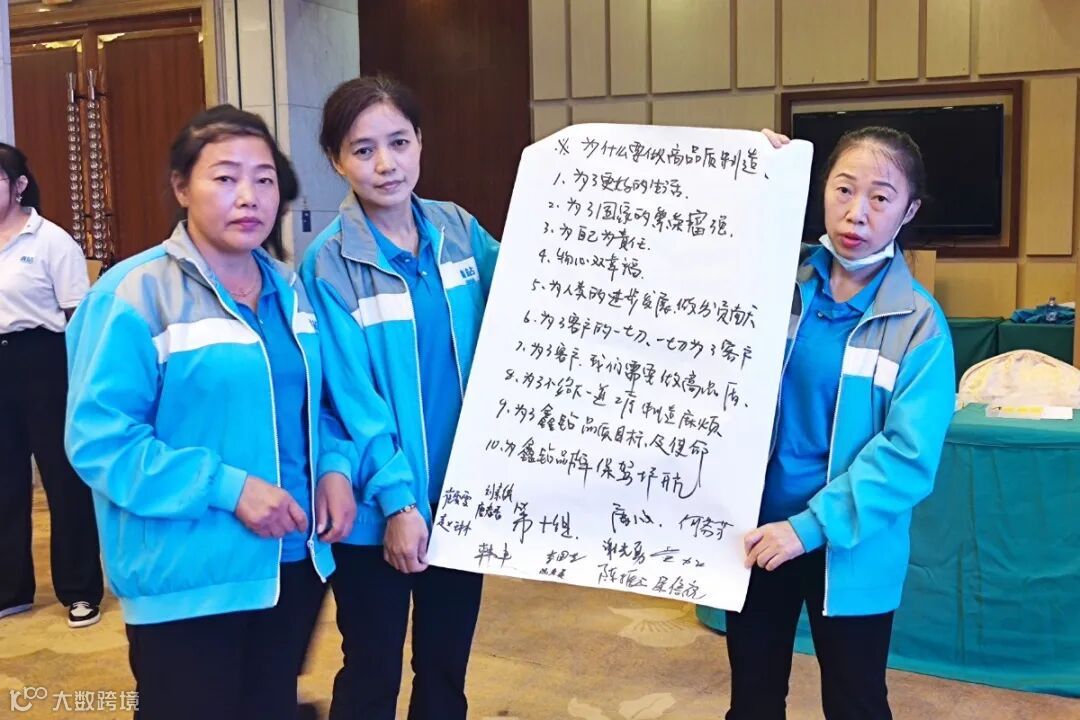 ※ 为什么要做高品质制造、
1、为了更好的生活.
2、为了国家的繁荣富强,
3、为自己为责任.
4、物心双幸福.
5、为人类的进步发展,做出贡献
6、为了客户的一切、一切为了客户
7、为了客户,我们需要做高品质、
8、为了不给下一道工序制造麻烦
9、为了鑫钻品质目标,及使命
10、为鑫钻品牌保驾护航
第十组.
谢先勇
韩丰
大数跨境